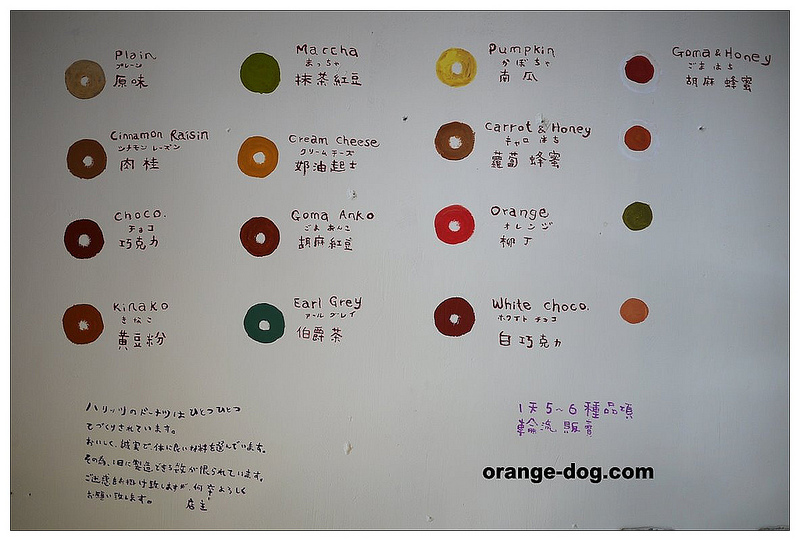 Plain
プレーン
原味
Cinnamon Raisin
シナモン レーズン
肉桂
Choco.
チョコ
巧克力
Kinako
きなこ
黄豆粉
Matcha
まっちゃ
抹茶紅豆
Cream Cheese
クリーム チーズ
奶油起士
Goma Anko
ごま あんこ
胡麻紅豆
Earl Grey
アール グレイ
伯爵茶
Pumpkin
かぼちゃ
南瓜
Carrot & Honey
キャロ はち
蘿蔔 蜂蜜
Orange
オレンジ
柳丁
White choco.
ホワイト チョコ
白巧克力
Goma & Honey
ごま はち
胡麻 蜂蜜
ハリッツのドーナツは ひとつひとつ
てづくりされています。
おいしく、誠実で、体に良い材料を選んでいます。
その為、1日に製造できる数が限られています。
ご迷惑をお掛け致しますが、何卒よろしく
お願い致します。
店主
1天5～6種品項
輪流 販賣
orange-dog.com